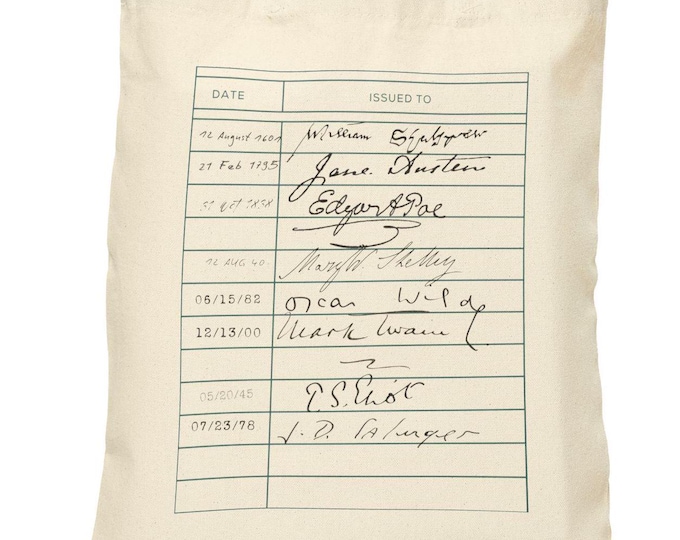 DATE ISSUED TO
12 August 1601 William
21 Feb 1795 Jane Austen
Edgar A Poe
12 AUG 40 Mary W. Shelley
06/15/82 Oscar Wilde
12/13/00 Mark Twain
05/20/45 T.S. Eliot
07/23/78 J. D. Salinger